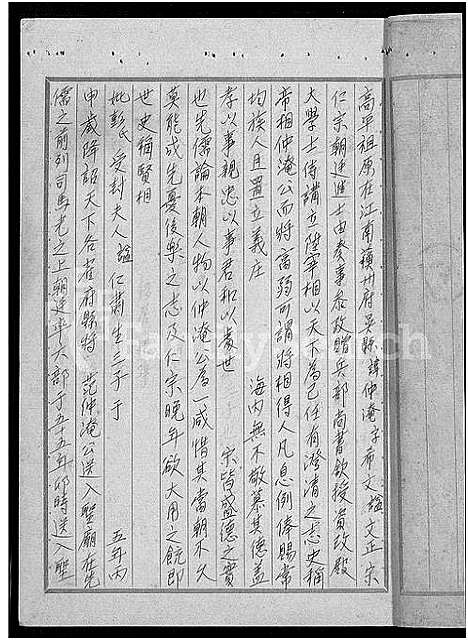 高平祖原在江南蘇州府吳縣諱仲淹字希文諡文正宗
仁宗朝進進士由參事參政贈兵部尚書欽授資政殿
大學士侍講立陞宰相以天下為己任有澄清之志史稱
帝相仲淹公而將富弼可謂將相得人凡息例俸賜常
均族人且置立義庄 海內無不敬慕其德蓋
孝以事親忠以事君和以貴世 宗皆盛德之實
也先儒論本朝人物以仲淹公為一咸惜其當朝不久
莫能成先憂後樂之志及仁宗晚年欲大用之既即
世史稱賢相
妣彭氏受封夫人諡仁 生三子于 五年丙
申歲降詔天下各省府縣將范仲淹公送入聖廟在先
儒之前列司馬光之上朝廷平大部于五十五年卯時送入聖
FamilySearch